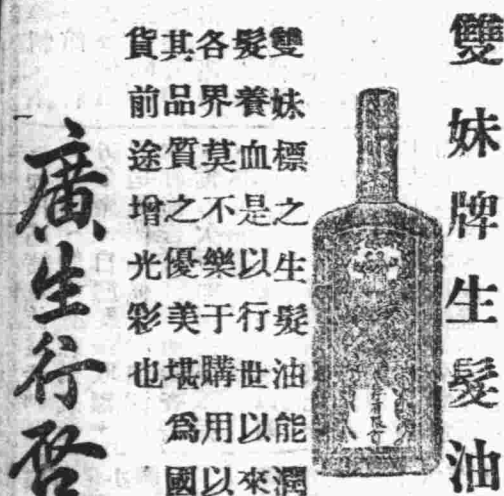 雙妹牌生髮油
雙妹標之生髮油能潤
髮養血是以行世以來
各界莫不樂于購用以
其品質之優美堪為國
貨前途增光彩也
廣生行啓